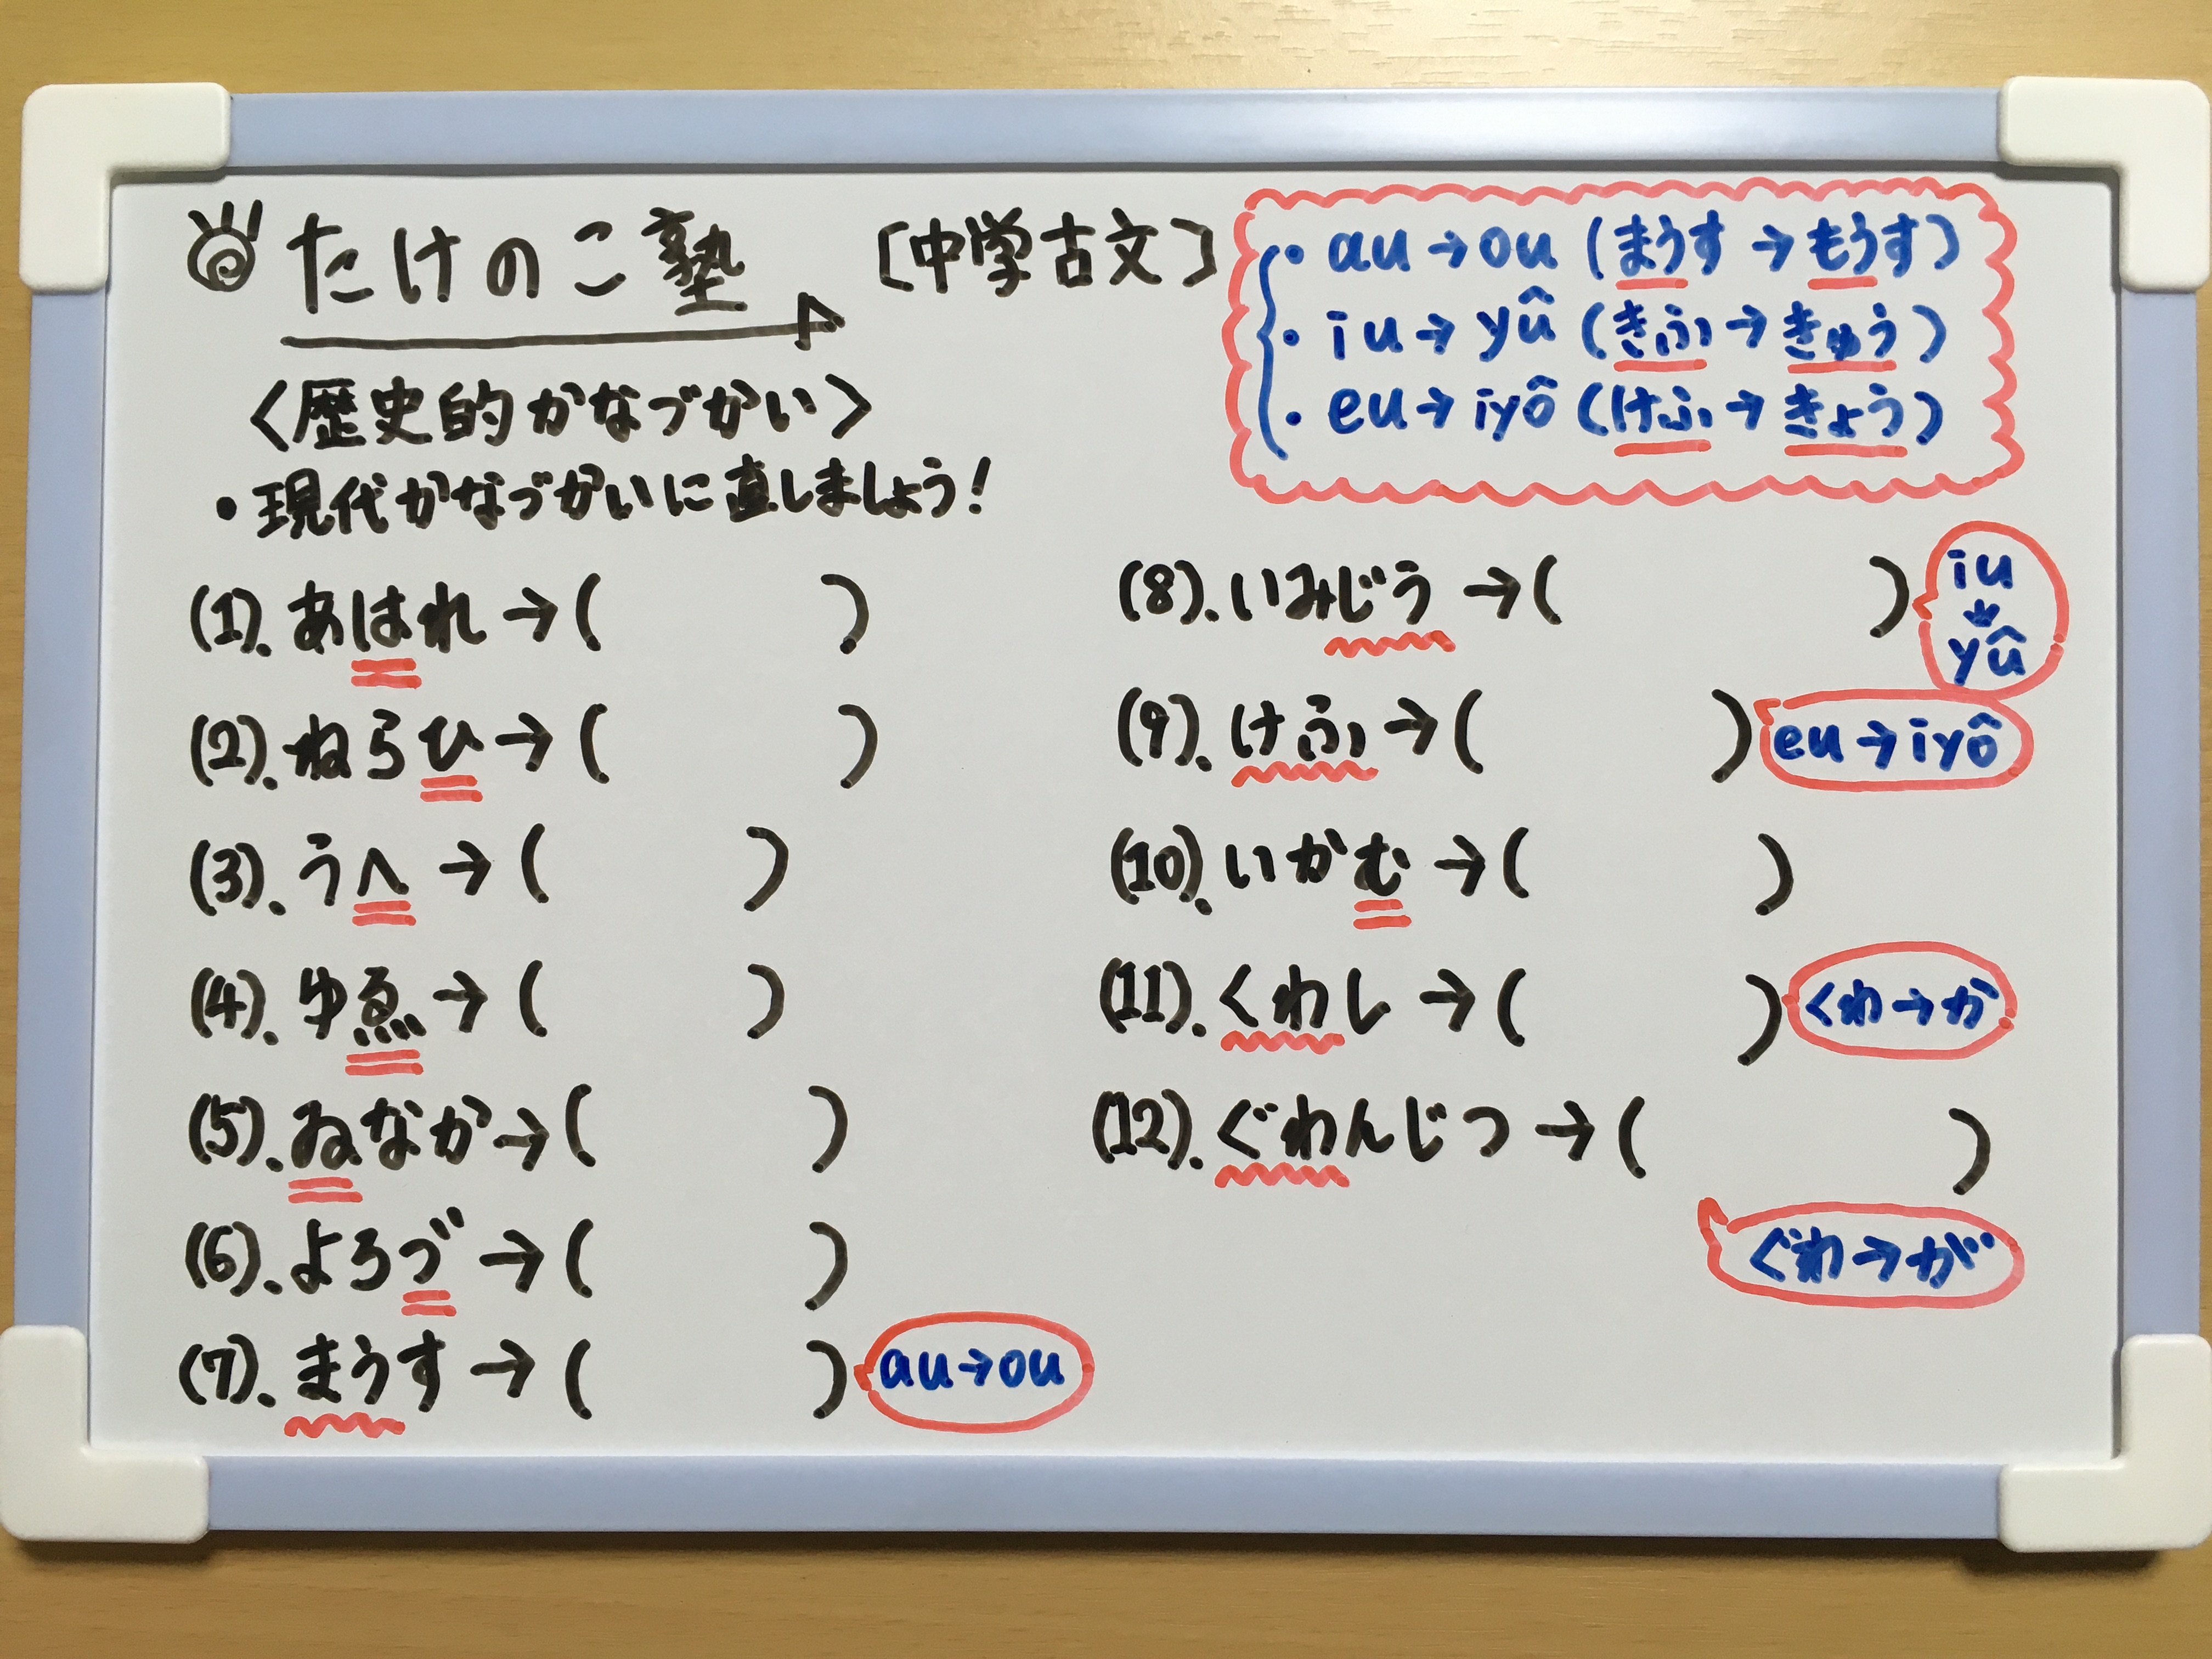 たけのこ塾 〔中学古文〕
・au→ou (まうす→もうす)
・iu→yû (きふ→きゅう)
・eu→iyô (けふ→きょう)
〈歴史的かなづかい〉
・現代かなづかいに直しましょう!
(1). あはれ→( )
(2). ねらひ→( )
(3). うへ→( )
(4). ゆゑ→( )
(5). ゐなか→( )
(6). よろづ→( )
(7). まうす→( ) au→ou
(8). いみじう→( ) iu→yû
(9). けふ→( ) eu→iyô
(10). いかむ→( )
(11). くわし→( ) くわ→か
(12). ぐわんじつ→( )
ぐわ→が